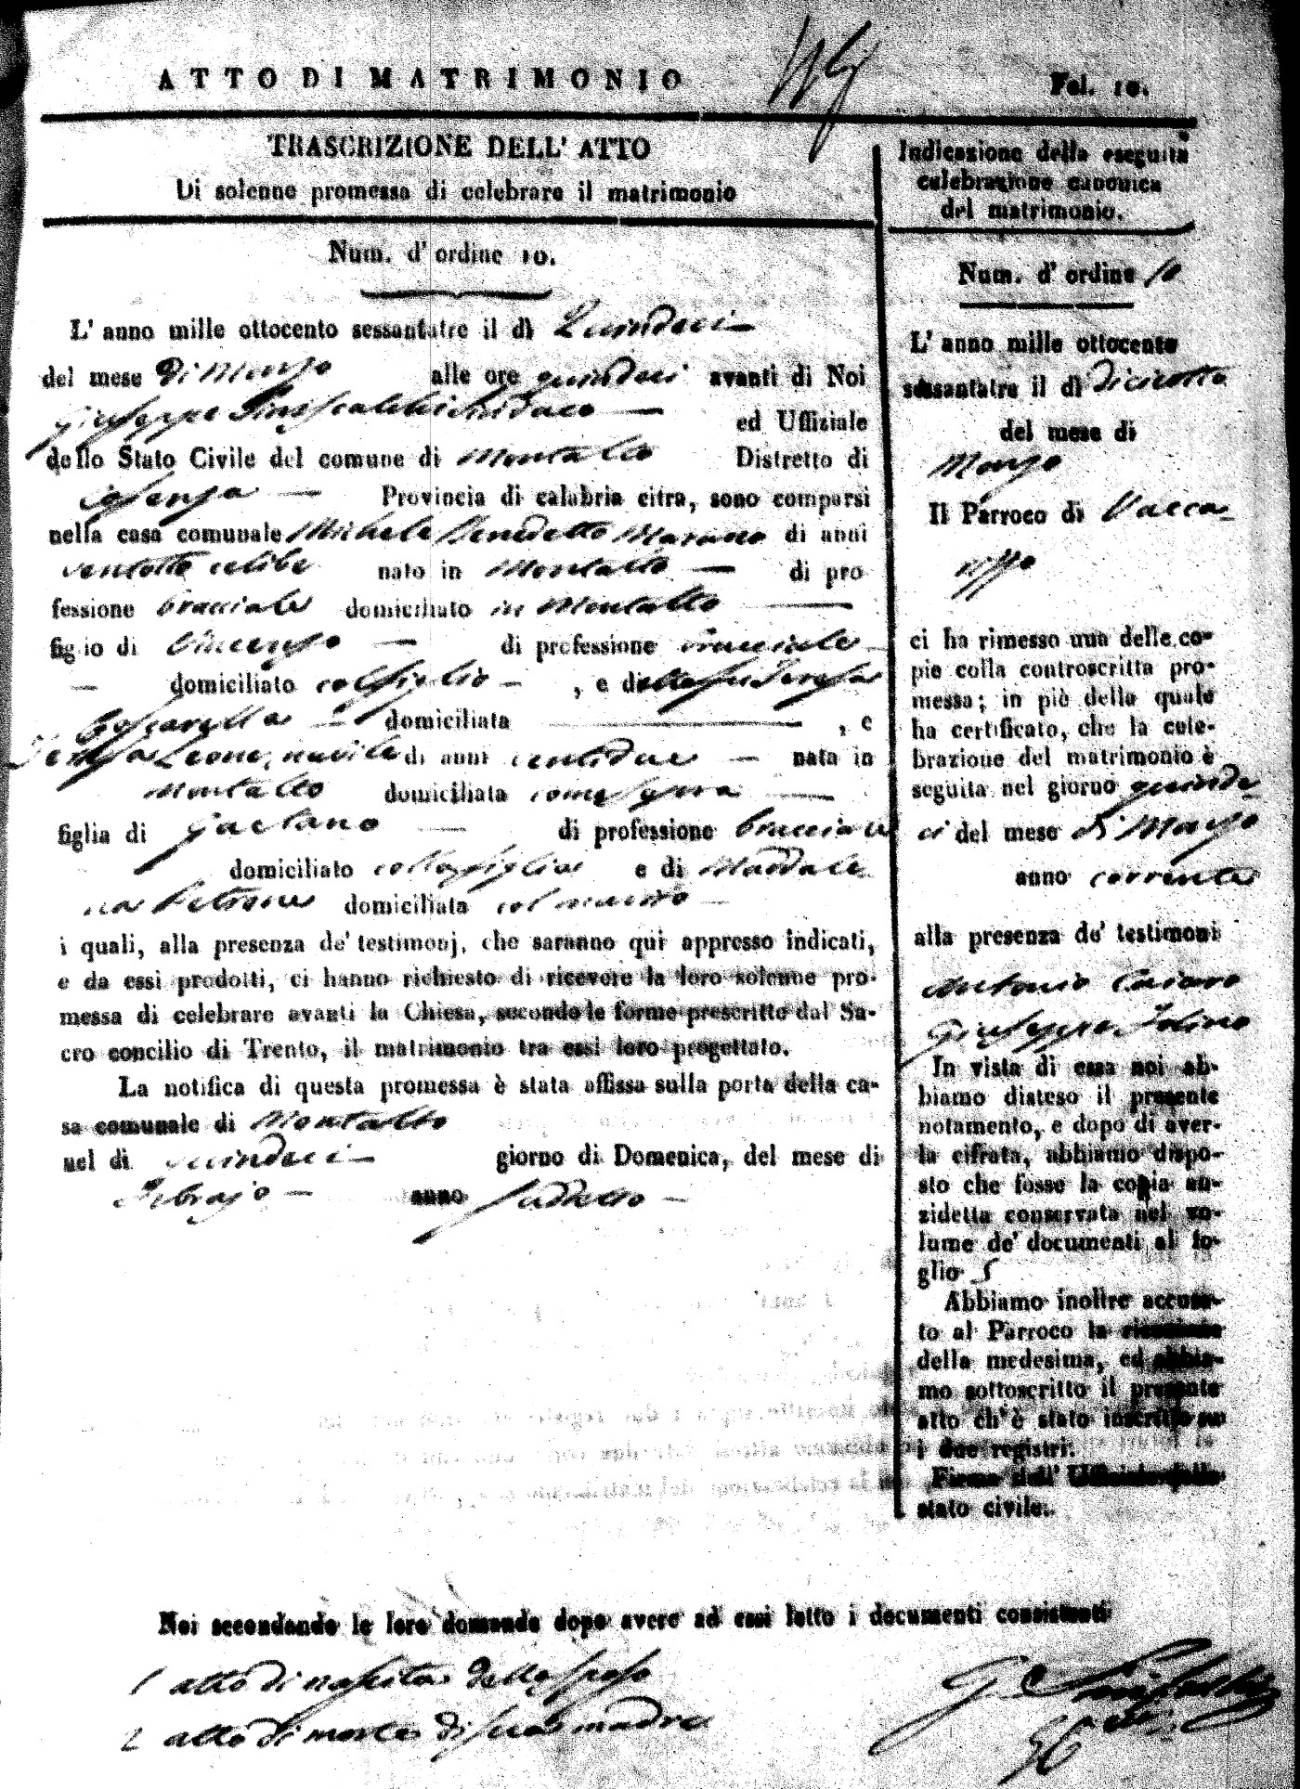 ATTO DI MATRIMONIO
Fol. 10.
TRASCRIZIONE DELL' ATTO
Di solenne promessa di celebrare il matrimonio
Num. d' ordine 10.
L' anno mille ottocento sessantatre il dì Quindeci
del mese di Marzo alle ore quindeci avanti di Noi
Giuseppe Siniscalchi Sindaco ed Uffiziale
dello Stato Civile del comune di Montalto Distretto di
Cosenza Provincia di calabria citra, sono comparsi
nella casa comunale Michele Benedetto Marano di anni
ventotto celibe nato in Montalto di pro
fessione bracciale domiciliato in Montalto
figlio di Vincenzo di professione bracciale
domiciliato col figlio, e della fu Teresa
domiciliata, e
Teresa Leone, nubile di anni ventidue nata in
Montalto domiciliata come sopra
figlia di Gaetano di professione bracciale
domiciliato colla figlia e di Maddale
na Petrone domiciliata col marito
i quali, alla presenza de' testimonj, che saranno qui appresso indicati,
e da essi prodotti, ci hanno richiesto di ricevere la loro solenne pro-
messa di celebrare avanti la Chiesa, secondo le forme prescritte dal Sa-
cro concilio di Trento, il matrimonio tra essi loro progettato.
La notifica di questa promessa è stata affissa sulla porta della ca-
sa comunale di Montalto
nel di quindeci giorno di Domenica, del mese di
Febrajo anno suddetto
Indicazione della eseguita
celebrazione canonica
del matrimonio.
Num. d' ordine 10
L' anno mille ottocento
sessantatre il dì diciotto
del mese di
Marzo
Il Parroco di Vacca-
rizzo
ci ha rimesso una delle co-
pie colla controscritta pro-
messa; in piè della quale
ha certificato, che la cele-
brazione del matrimonio è
seguita nel giorno quinde-
ci del mese di Marzo
anno corrente
alla presenza de' testimoni
Antonio
Giuseppe
In vista di essa noi ab-
biamo disteso il presente
notamento, e dopo di aver-
la cifrata, abbiamo dispo-
sto che fosse la copia an-
zidetta conservata nel vo-
lume de' documenti al fo-
glio 5
Abbiamo inoltre accusa-
to al Parroco la ricezione
della medesima, ed abbia-
mo sottoscritto il presente
atto ch' è stato inscritto su
i due registri.
Firma dell' Uffiziale dello
stato civile.
Noi secondando le loro domande dopo avere ad essi letto i documenti consistenti
1 atto di nascita dello sposo
2 atto di morte di sua madre